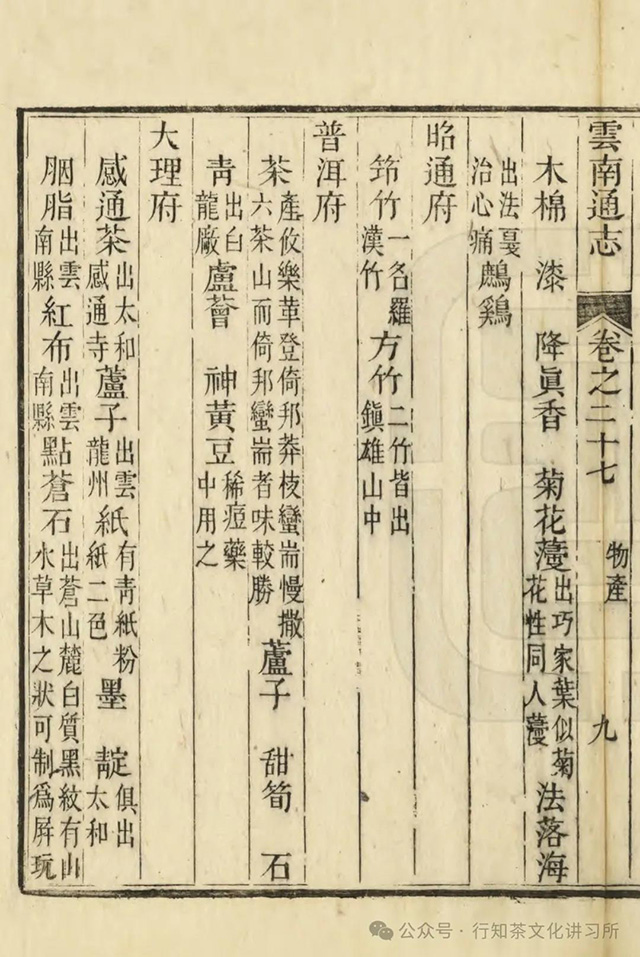 雲南通志 卷之二十七 物產 九
木棉 漆 降眞香 菊花薓 出巧家葉似菊花性同人薓 法落海
出法戛治心痛 鷄
昭通府
筇竹 一名羅漢竹 方竹 二竹皆出鎭雄山中
普洱府
茶 產攸樂革登倚邦莽枝蠻耑慢撒六茶山而倚邦蠻耑者味較勝 蘆子 甜筍 石
青 出白龍廠 盧薈 神黃豆 稀痘藥中用之
大理府
感通茶 出太和感通寺 蘆子 出雲龍州 紙 有青紙粉紙二色 墨 靛 俱出太和
胭脂 出雲南縣 紅布 出雲南縣 點蒼石 出蒼山麓白質黑紋有山水草木之狀可制爲屏玩
公众号 · 行知茶文化讲习所